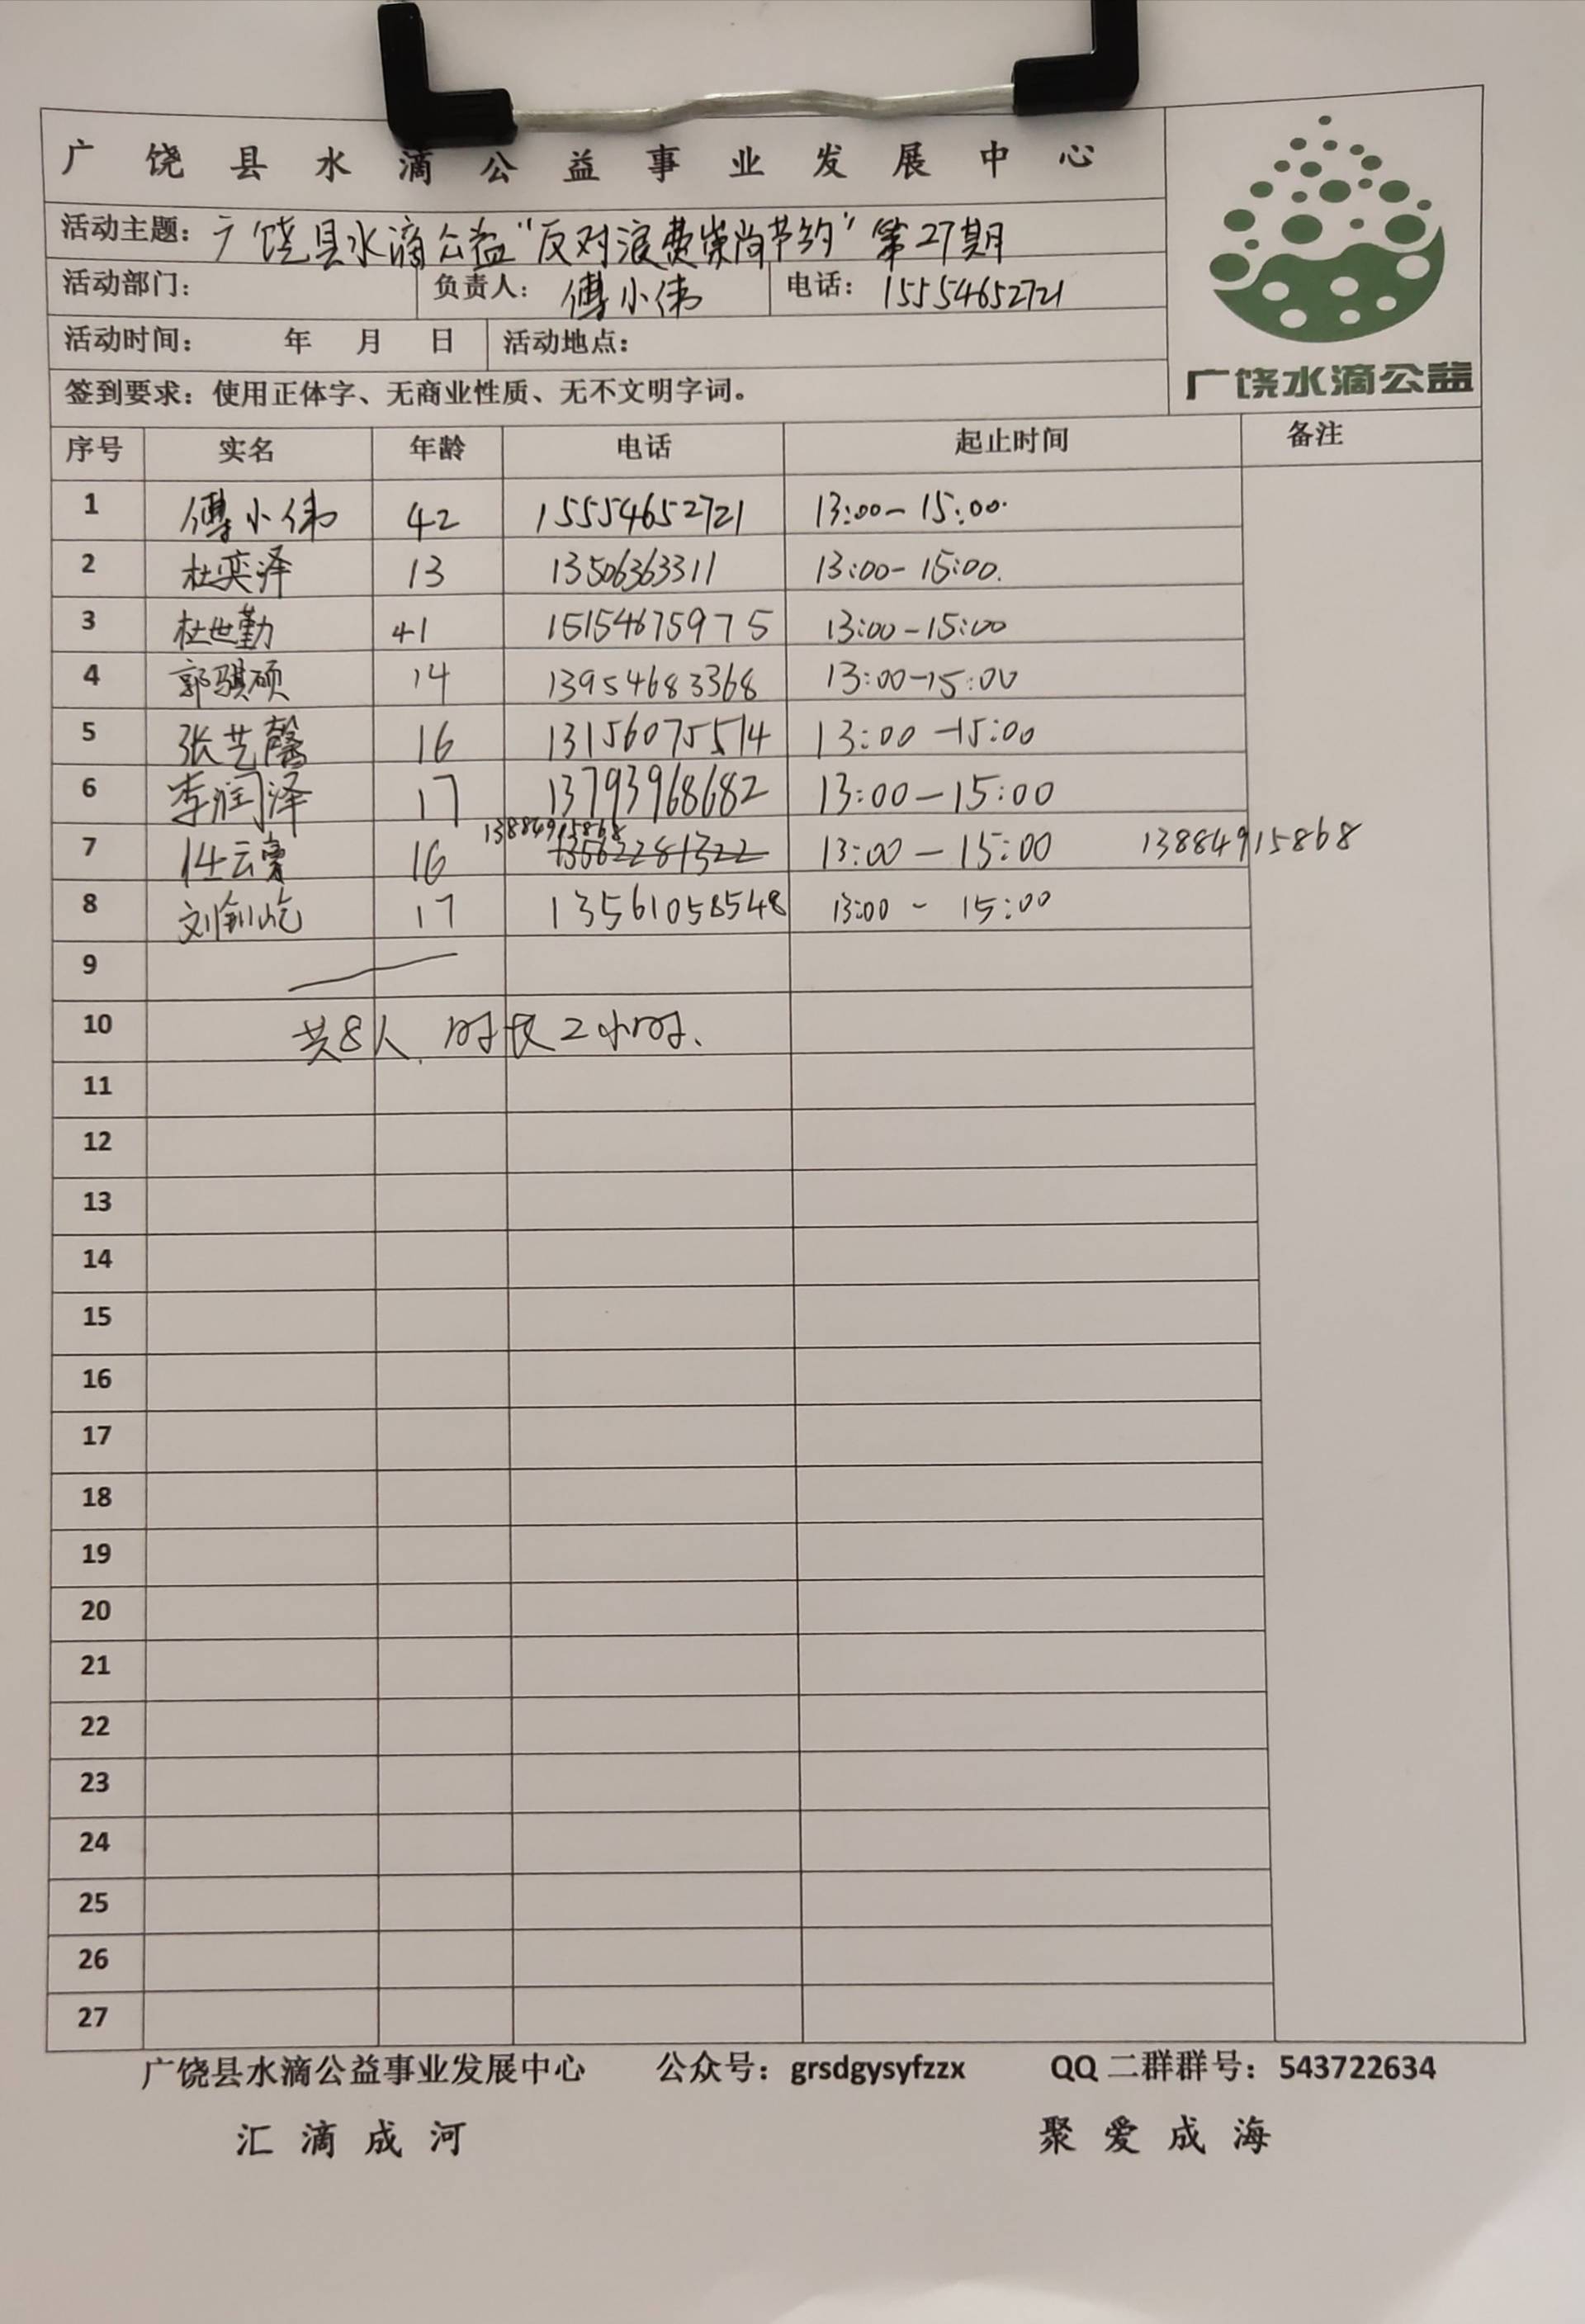 广饶县水滴公益事业发展中心
活动主题：广饶县水滴公益“反对浪费崇尚节约”第27期
活动部门： 负责人：傅小伟 电话：15554652721
活动时间： 年 月 日 活动地点：
广饶水滴公益
签到要求：使用正体字、无商业性质、无不文明字词。
序号 实名 年龄 电话 起止时间 备注
1 傅小伟 42 15554652721 13:00-15:00.
2 杜奕泽 13 13506363311 13:00-15:00.
3 杜世勤 41 15154675975 13:00-15:00
4 郭骐硕 14 13954683368 13:00-15:00
5 张艺馨 16 13156075514 13:00-15:00
6 李润泽 17 13793968682 13:00-15:00
13884915868
7 任云 16 13562281322 13:00-15:00 13884915868
8 刘钊屹 17 13561058548 13:00-15:00
9
10 共8人.时长2小时、
11
12
13
14
15
16
17
18
19
20
21
22
23
24
25
26
27
广饶县水滴公益事业发展中心 公众号：grsdgysyfzzx QQ二群群号：543722634
汇滴成河 聚爱成海